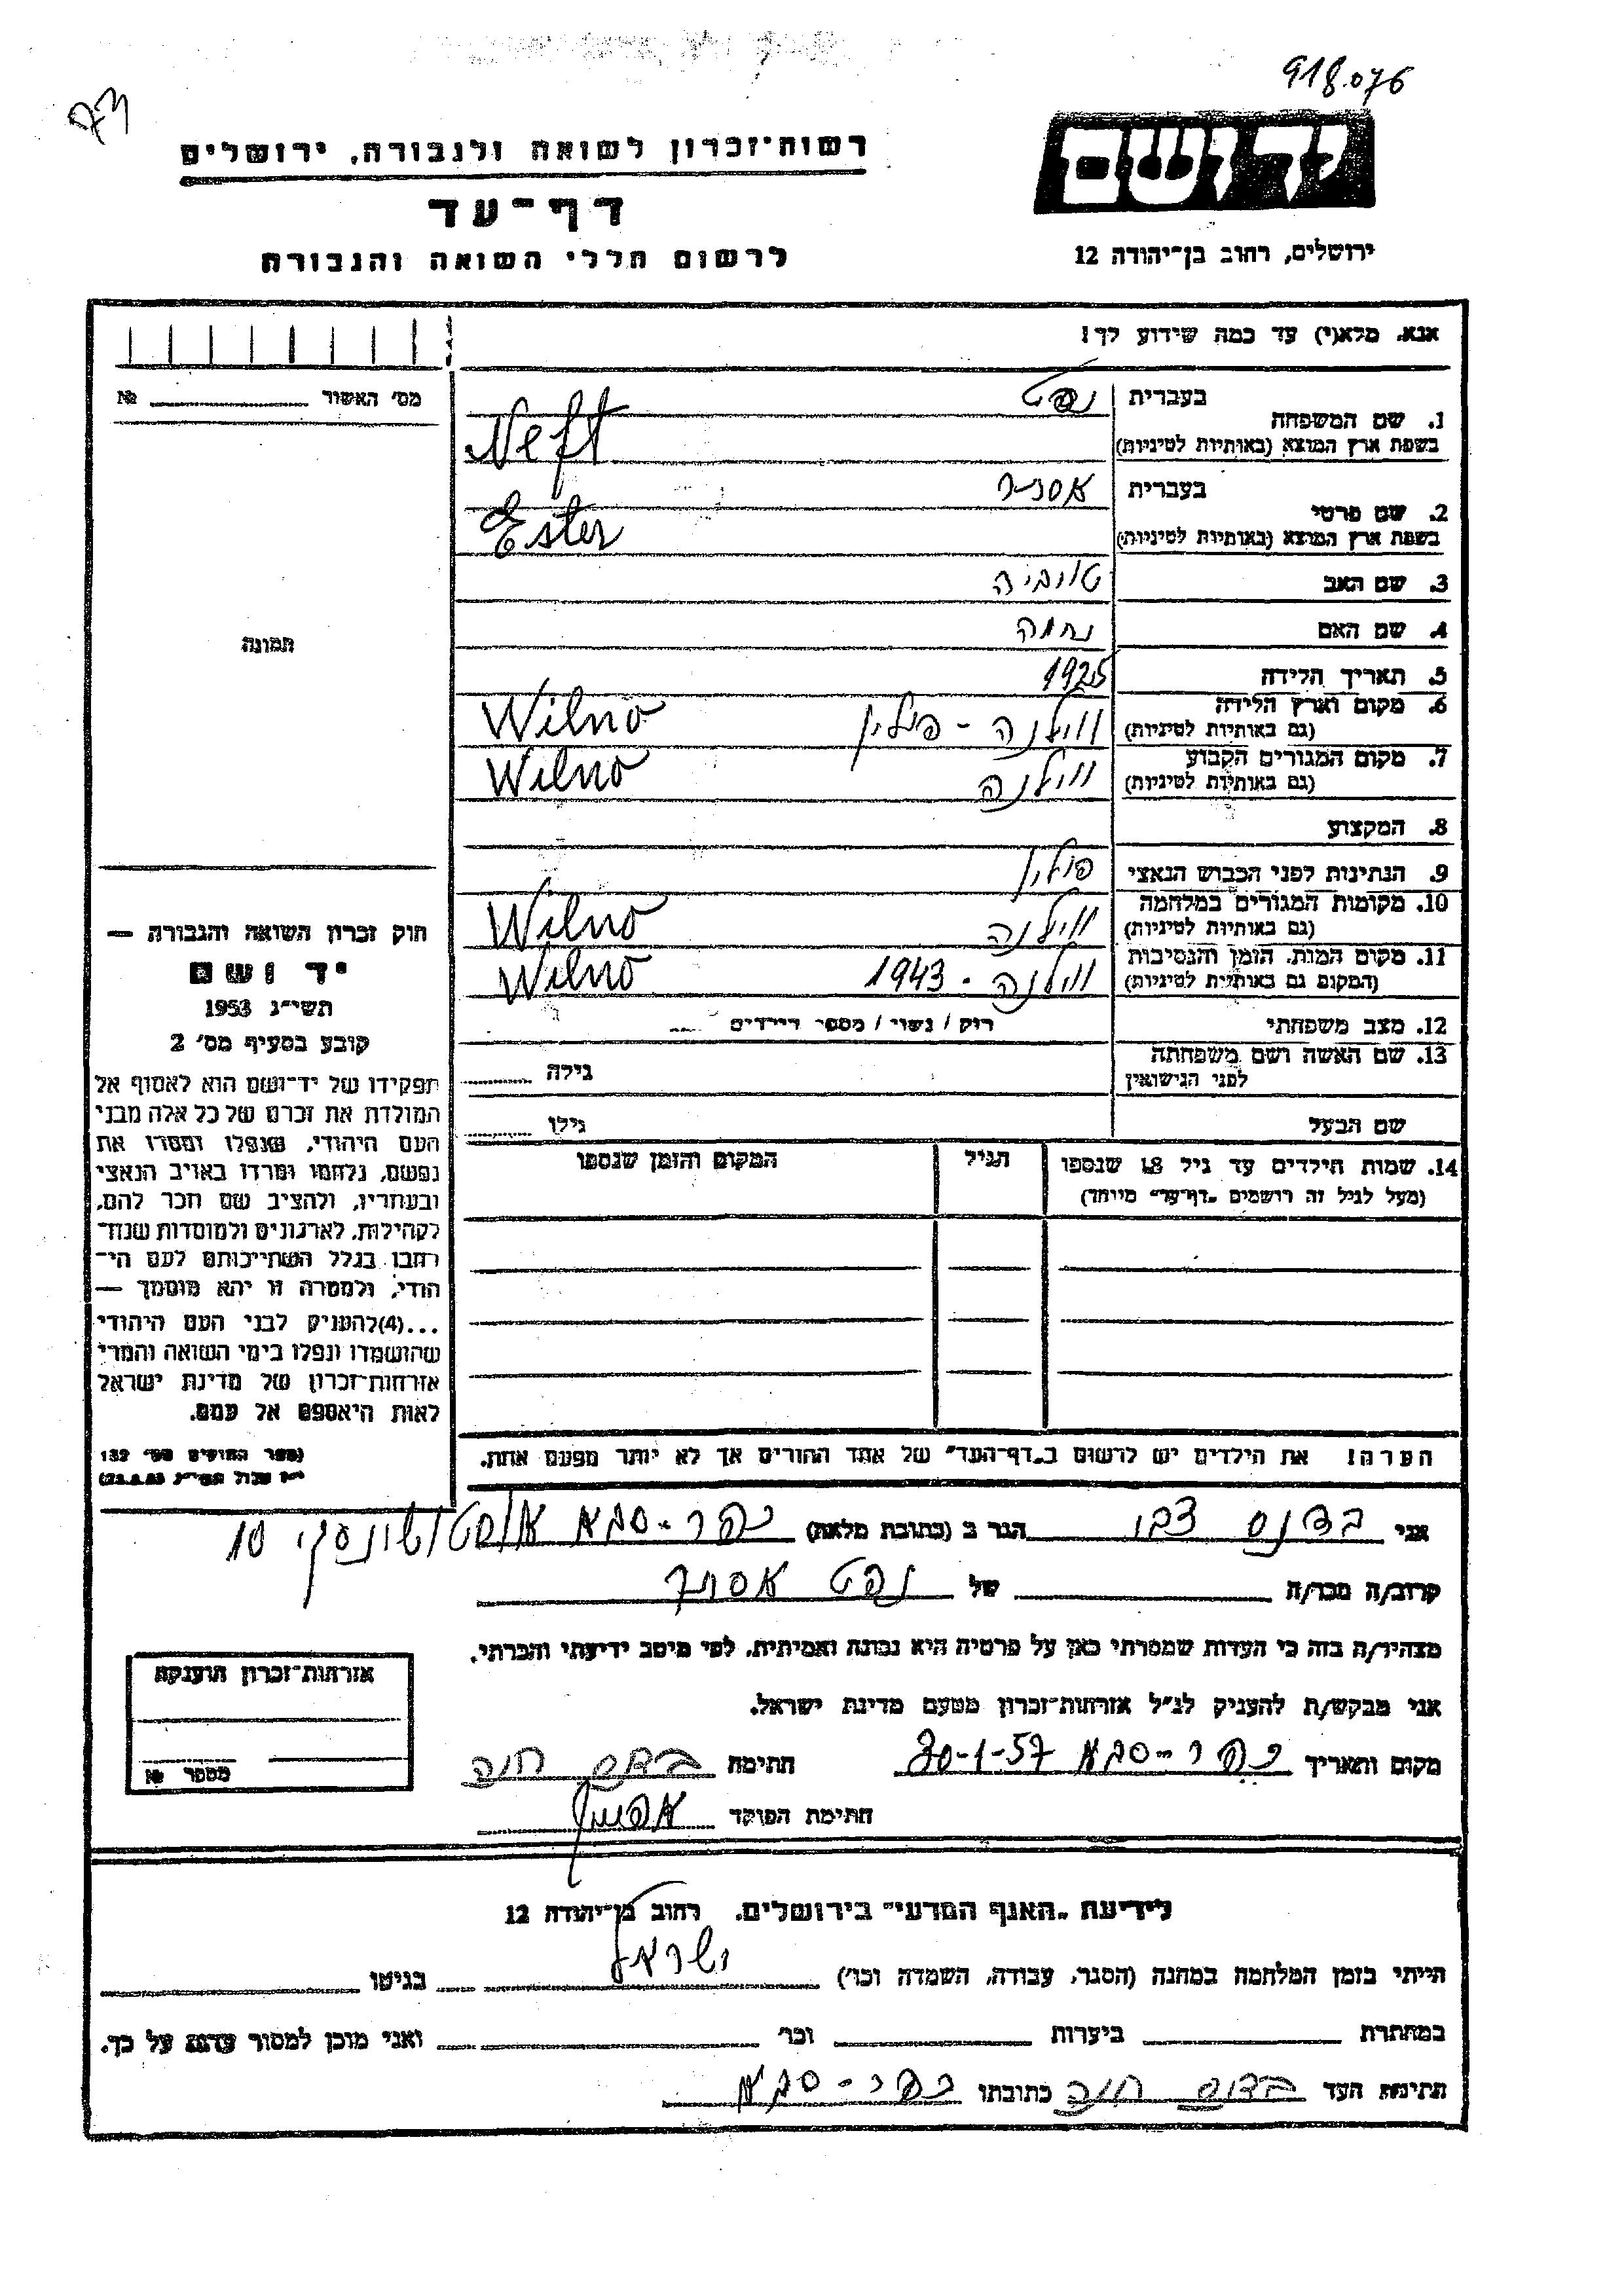 918.076
רשות־זכרון לשואה ולגבורה, ירושלים
יד ושם
דף־עד
ירושלים, רחוב בן־יהודה 12
לרשום חללי השואה והגבורה
אנא, מלא(י) עד כמה שידוע לך!
מס׳ האשור № 
1. שם המשפחה בעברית נפט
בשפת ארץ המוצא (באותיות לטיניות) Neft
2. שם פרטי בעברית אסתר
בשפת ארץ המוצא (באותיות לטיניות) Ester
3. שם האב טוביה
4. שם האם נחמה
תמונה
5. תאריך הלידה 1925
6. מקום וארץ הלידה (גם באותיות לטיניות) ווילנה - פולין Wilno
7. מקום המגורים הקבוע (גם באותיות לטיניות) ווילנה Wilno
8. המקצוע
9. הנתינות לפני הכבוש הנאצי פולין
10. מקומות המגורים במלחמה (גם באותיות לטיניות) ווילנה Wilno
11. מקום המות, הזמן והנסיבות (המקום גם באותיות לטיניות) ווילנה - 1943 Wilno
12. מצב משפחתי רוק / נשוי / מספר הילדים
13. שם האשה ושם משפחתה לפני הנישואין גילה
שם הבעל גילו
14. שמות הילדים עד גיל 18 שנספו הגיל המקום והזמן שנספו
(מעל לגיל זה רושמים „דף־עד״ מיוחד)
חוק זכרון השואה והגבורה —
יד ושם
תשי״ג 1953
קובע בסעיף מס׳ 2
תפקידו של יד־ושם הוא לאסוף אל
המולדת את זכרם של כל אלה מבני
העם היהודי, שנפלו ומסרו את
נפשם, נלחמו ומרדו באויב הנאצי
ובעוזריו, ולהציב שם וזכר להם,
לקהילות, לארגונים ולמוסדות שנח־
רבו בגלל השתייכותם לעם הי־
הודי, ולמטרה זו יהא מוסמך —
...(4) להעניק לבני העם היהודי
שהושמדו ונפלו בימי השואה והמרי
אזרחות־זכרון של מדינת ישראל
לאות היאספם אל עמם.
(ספר החוקים מס׳ 132
הערה! את הילדים יש לרשום ב„דף־העד״ של אחד ההורים אך לא יותר מפעם אחת.
אני הגר ב (כתובת מלאה) כפר-סבא 10
קרוב/ה מכר/ה של נפט אסתר
מצהיר/ה בזה כי העדות שמסרתי כאן על פרטיה היא נכונה ואמיתית, לפי מיטב ידיעתי והכרתי.
אני מבקש/ת להעניק לנ״ל אזרחות־זכרון מטעם מדינת ישראל.
מקום ותאריך כפר-סבא 30-1-57 חתימה חנה
חתימת הפוקד
אזרחות־זכרון הוענקה
מספר №
לידיעת „האגף המדעי״ בירושלים, רחוב בן־יהודה 12
הייתי בזמן המלחמה במחנה (הסגר, עבודה, השמדה וכו׳) ישראל בגיטו
במחתרת ביערות וכו׳ ואני מוכן למסור עדות על כך.
חתימת העד חנה כתובתו כפר-סבא